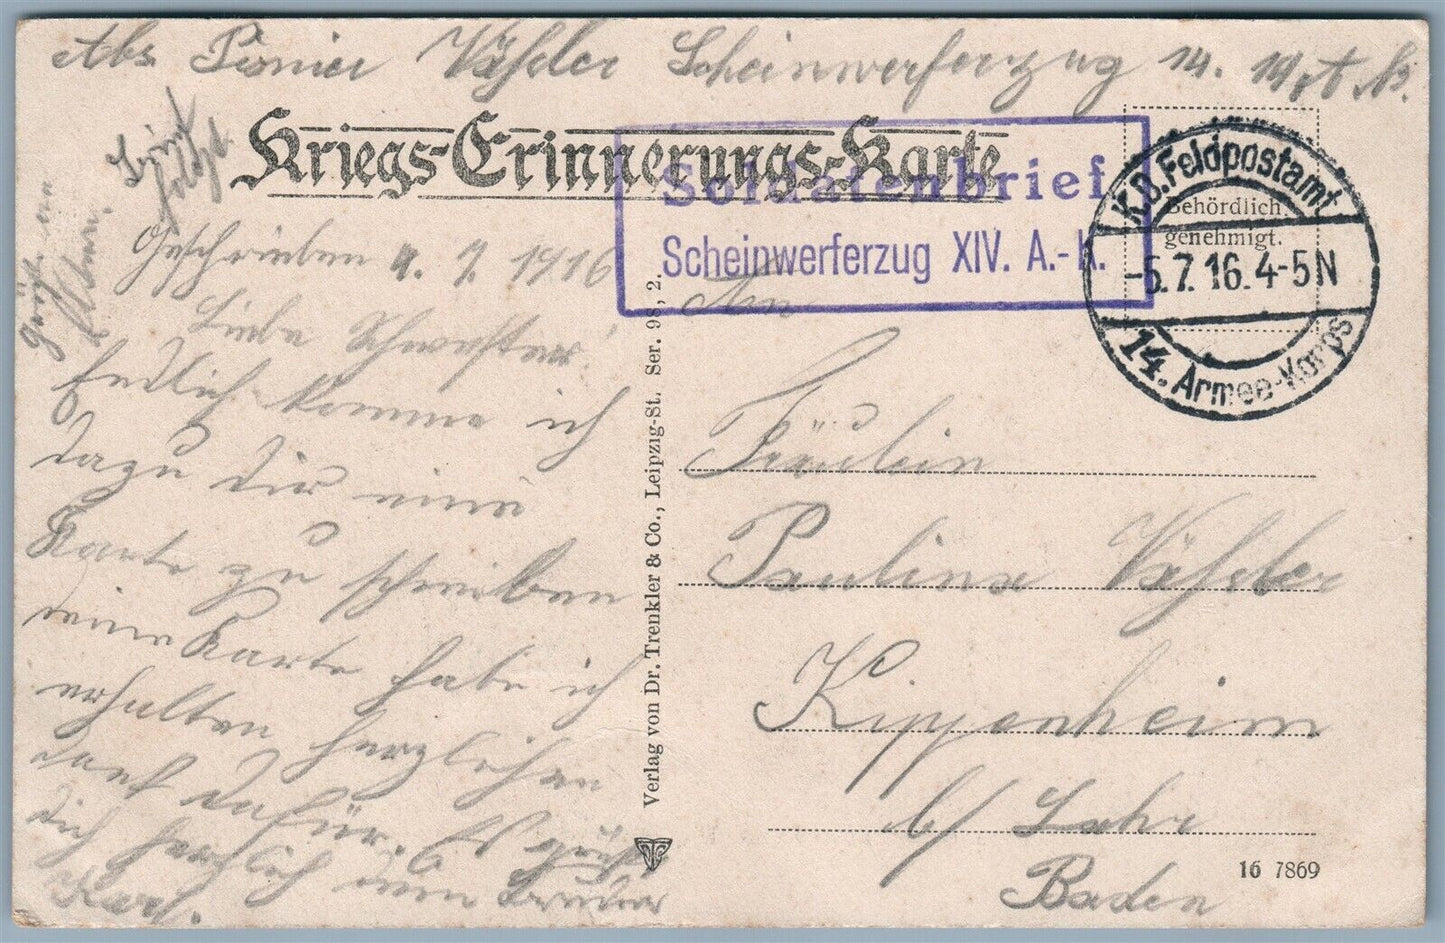 Abs. Pionier Vähsler Scheinwerferzug 14. 14. A.K.
Kriegs-Erinnerungs-Karte
Soldatenbrief
Scheinwerferzug XIV. A.-K.
K.B. Feldpostamt
-5.7.16. 4-5N
14. Armee-Korps
Behördlich
genehmigt.
Geschrieben 4. 7. 1916
Liebe Schwester!
Endlich komme ich
dazu Dir eine
Karte zu schreiben
deine Karte habe ich
erhalten herzlichen
Dank dafür. Es grüßt
dich herzlich dein Bruder
Karl.
An
Fräulein
Paulina
Kippenheim
b/ Lahr
Baden
Verlag von Dr. Trenkler & Co., Leipzig-St. Ser. 98, 2.
16 7869